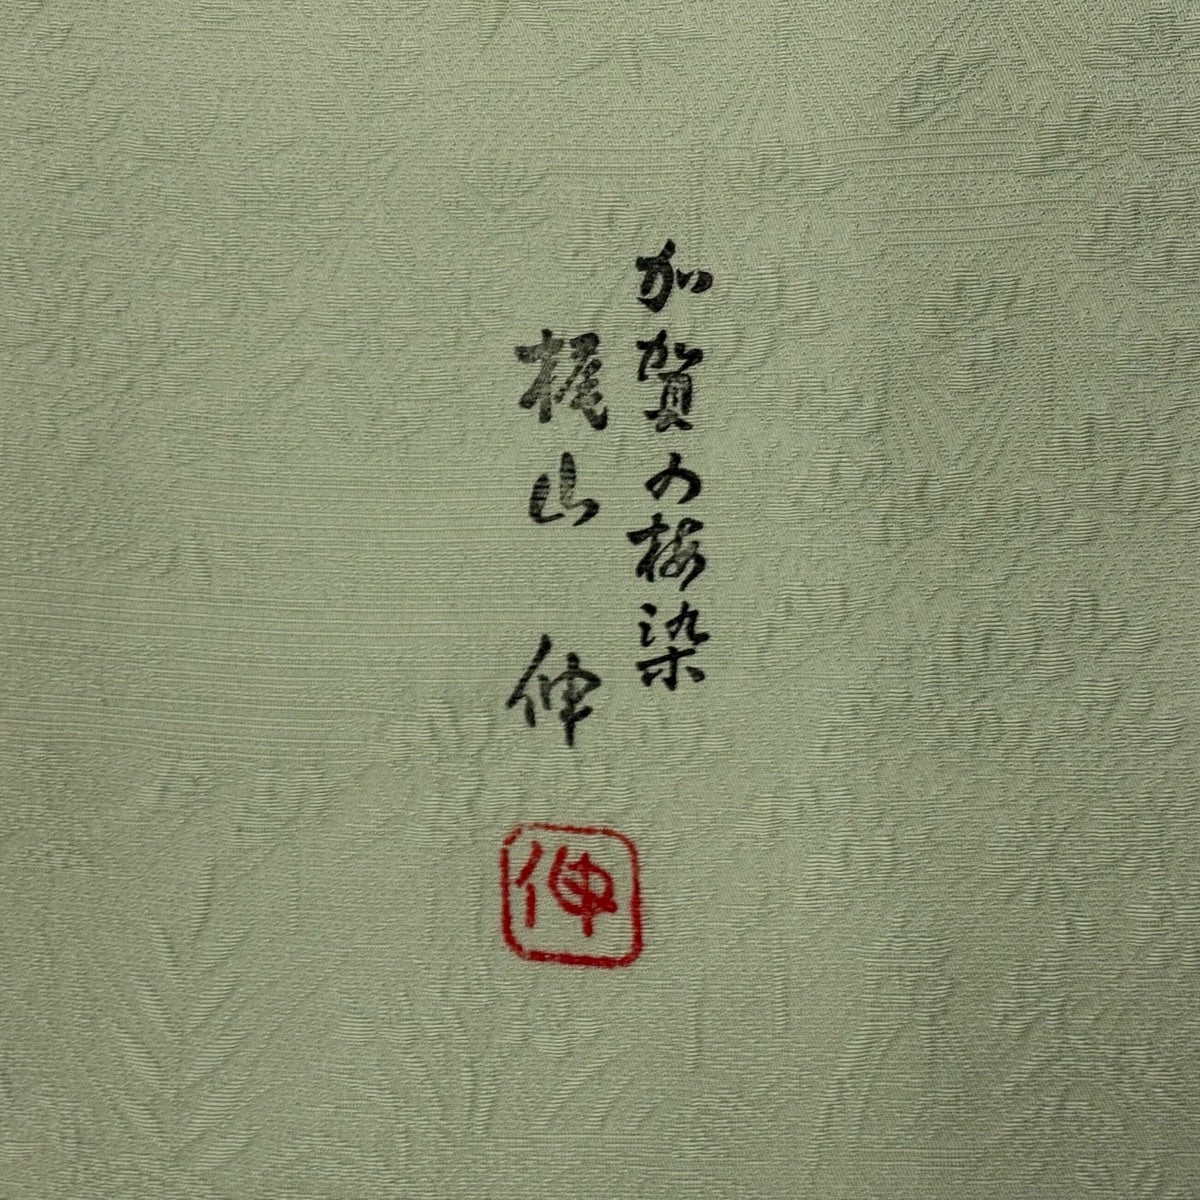 加賀の梅染
梶山 伸
伸